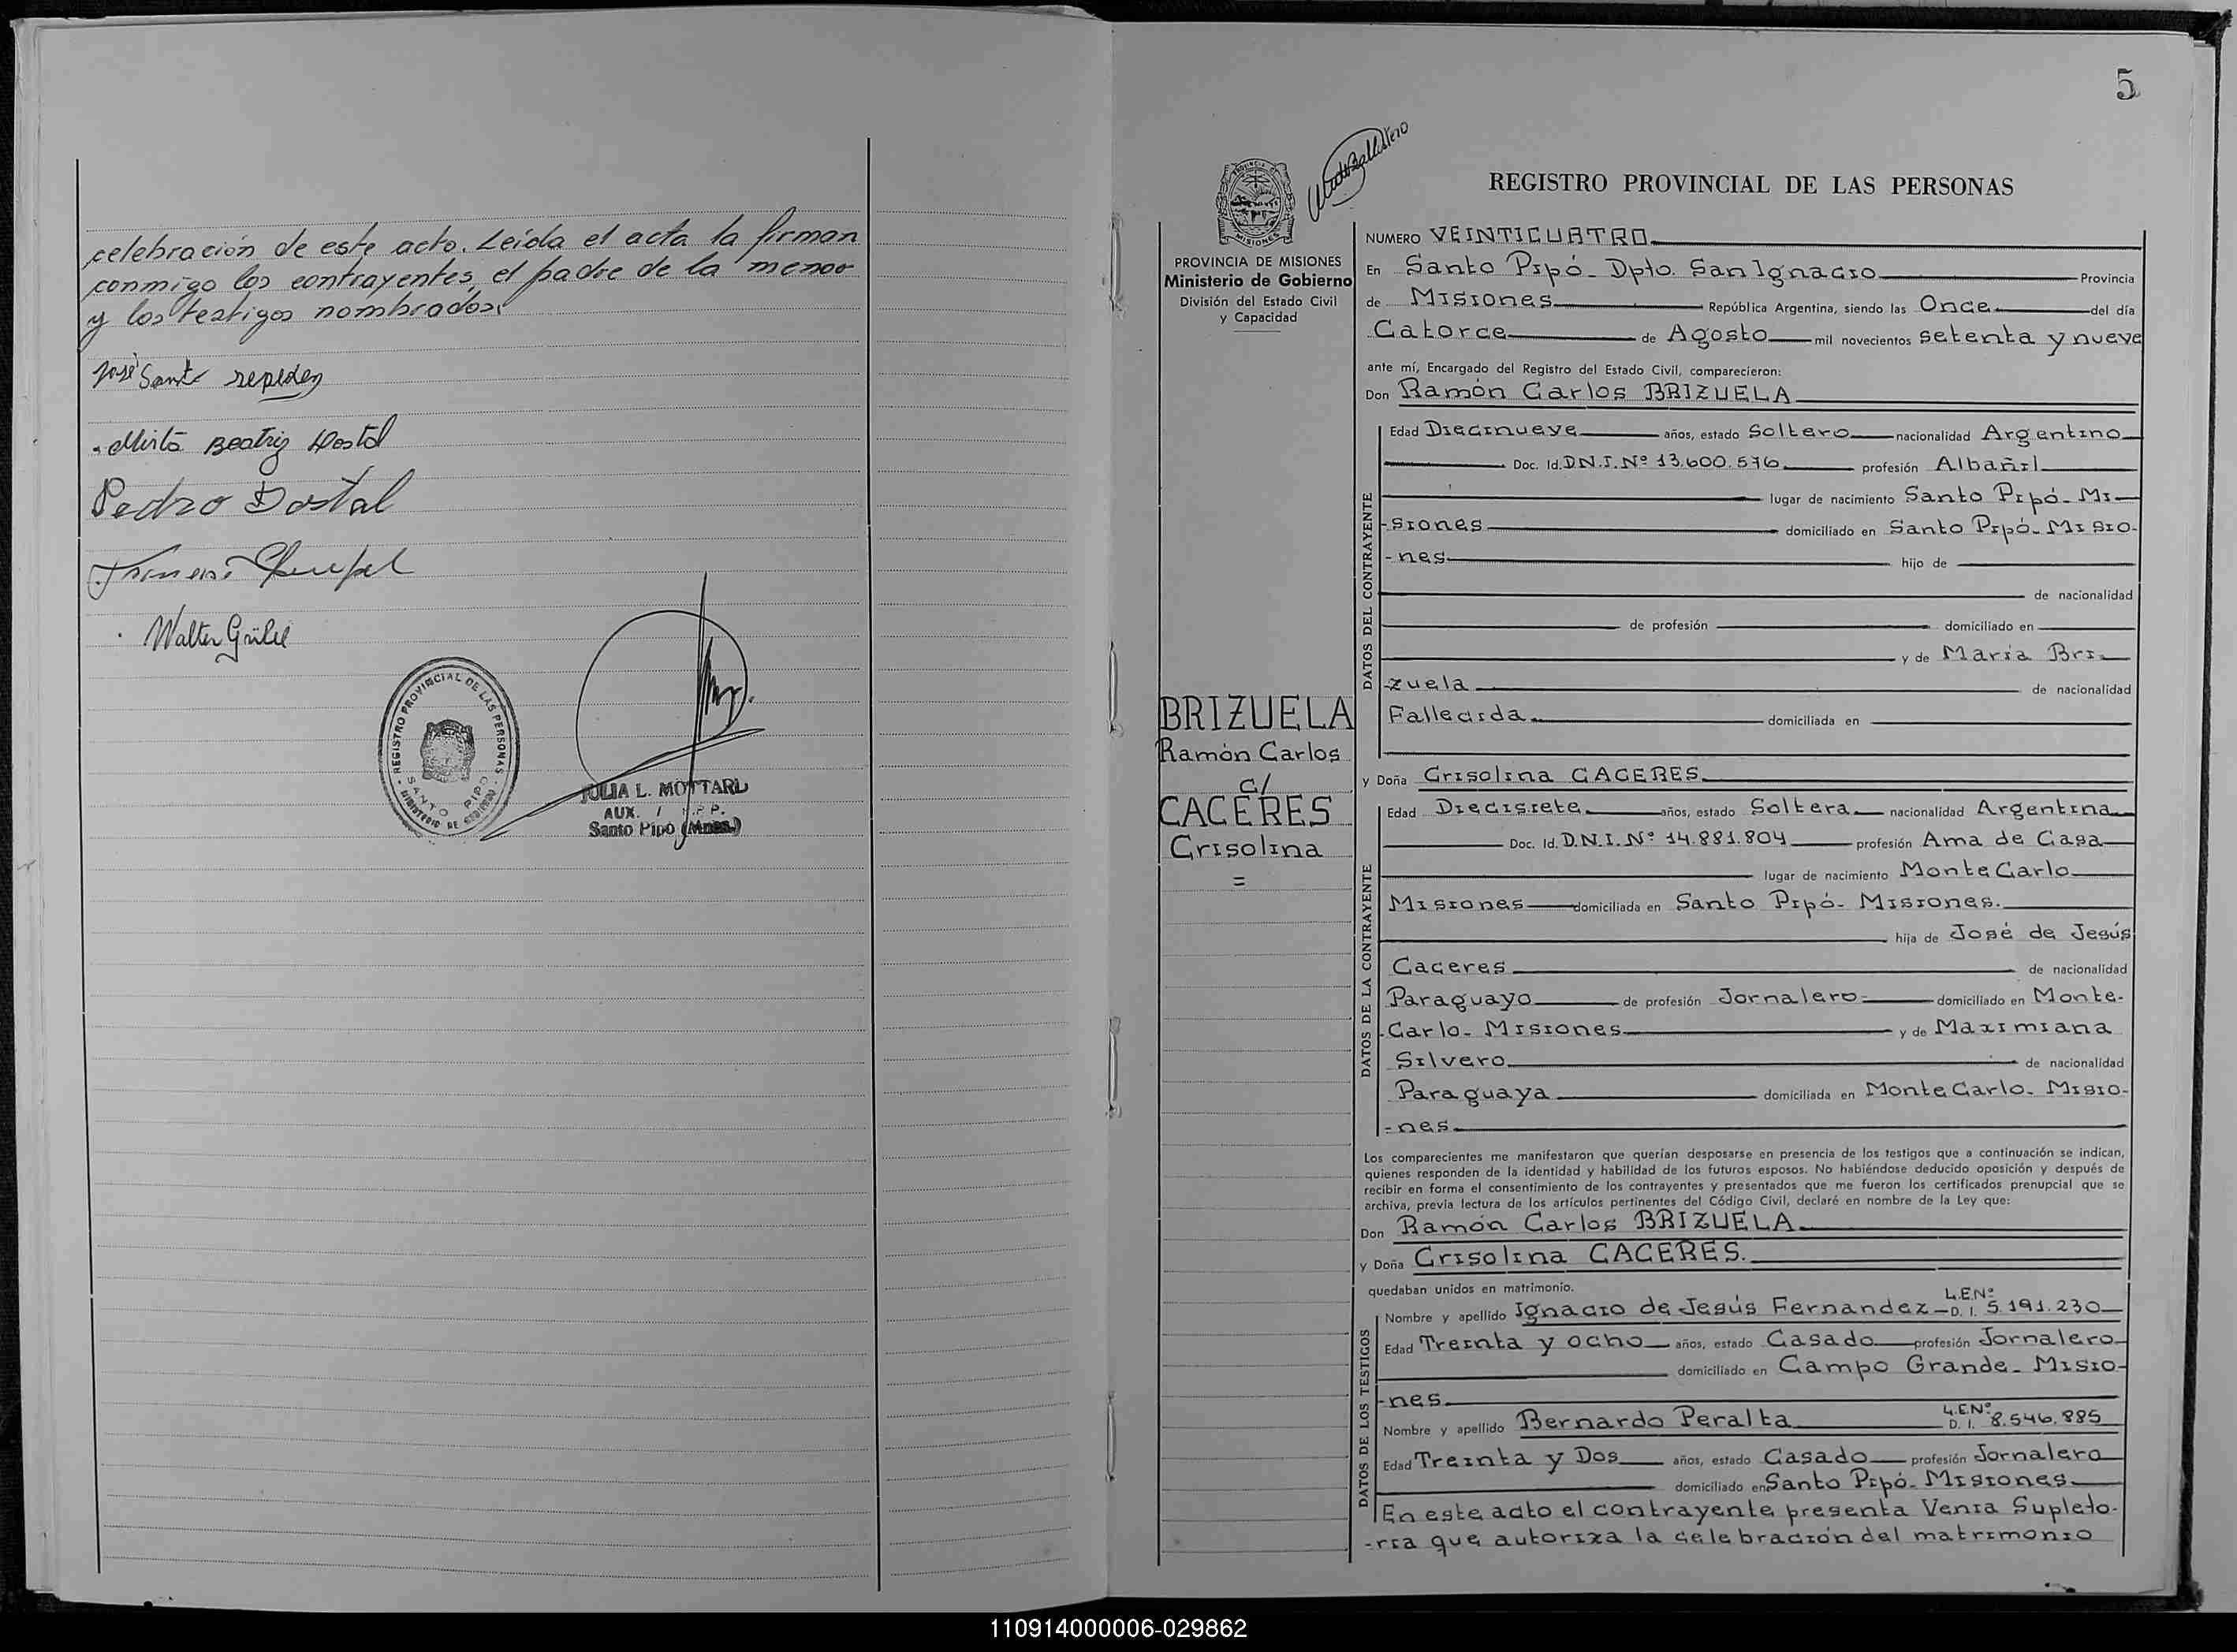 celebración de este acto. Leída el acta la firman
conmigo los contrayentes, el padre de la menor
y los testigos nombrados.
José Santo
Mirta Beatriz Dostal
Pedro Dostal
Walter
REGISTRO PROVINCIAL DE LAS PERSONAS
SANTO PIPÓ
MINISTERIO DE GOBIERNO
JULIA L. MOTTARL
AUX.
Santo Pipó (Mnes.)
5
PROVINCIA
MISIONES
PROVINCIA DE MISIONES
Ministerio de Gobierno
División del Estado Civil
y Capacidad
BRIZUELA
Ramón Carlos
c/
CACERES
Crisolina
=
REGISTRO PROVINCIAL DE LAS PERSONAS
NUMERO VEINTICUATRO
En Santo Pipó - Dpto. San Ignacio Provincia
de Misiones República Argentina, siendo las Once del día
Catorce de Agosto mil novecientos setenta y nueve
ante mí, Encargado del Registro del Estado Civil, comparecieron:
Don Ramón Carlos BRIZUELA
DATOS DEL CONTRAYENTE
Edad Diecinueve años, estado Soltero nacionalidad Argentino
Doc. Id. D.N.I. Nº 13.600.576 profesión Albañil
lugar de nacimiento Santo Pipó - Mi-
-siones domiciliado en Santo Pipó - Misio-
-nes hijo de
de nacionalidad
de profesión domiciliado en
y de María Bri-
-zuela de nacionalidad
Fallecida domiciliada en
y Doña Crisolina CACERES
DATOS DE LA CONTRAYENTE
Edad Diecisiete años, estado Soltera nacionalidad Argentina
Doc. Id. D.N.I. Nº 14.881.804 profesión Ama de Casa
lugar de nacimiento Monte Carlo
Misiones domiciliada en Santo Pipó - Misiones.
hija de José de Jesús
Caceres de nacionalidad
Paraguayo de profesión Jornalero domiciliado en Monte-
-Carlo - Misiones y de Maximiana
Silvero de nacionalidad
Paraguaya domiciliada en Monte Carlo - Misio-
-nes.
Los comparecientes me manifestaron que querían desposarse en presencia de los testigos que a continuación se indican,
quienes responden de la identidad y habilidad de los futuros esposos. No habiéndose deducido oposición y después de
recibir en forma el consentimiento de los contrayentes y presentados que me fueron los certificados prenupcial que se
archiva, previa lectura de los artículos pertinentes del Código Civil, declaré en nombre de la Ley que:
Don Ramón Carlos BRIZUELA
y Doña Crisolina CACERES.
quedaban unidos en matrimonio.
DATOS DE LOS TESTIGOS
L.E.Nº
Nombre y apellido Ignacio de Jesús Fernandez D. I. 5.191.230
Edad Treinta y ocho años, estado Casado profesión Jornalero
domiciliado en Campo Grande - Misio-
-nes.
L.E.Nº
Nombre y apellido Bernardo Peralta D. I. 8.546.885
Edad Treinta y Dos años, estado Casado profesión Jornalero
domiciliado en Santo Pipó - Misiones
En este acto el contrayente presenta Venia Supleto-
-ria que autoriza la celebración del matrimonio
110914000006-029862